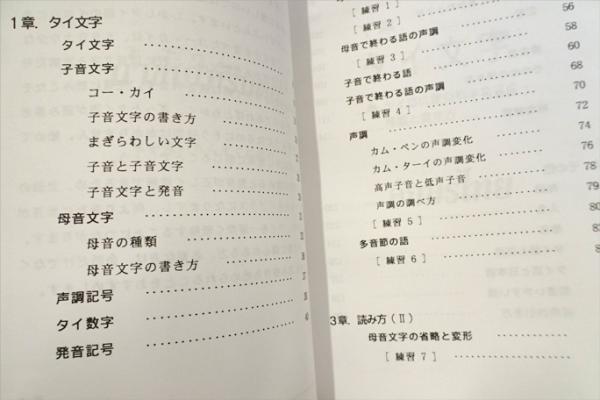 1章. タイ文字
タイ文字
子音文字
コー・カイ
子音文字の書き方
まぎらわしい文字
子音と子音文字
子音文字と発音
母音文字
母音の種類
母音文字の書き方
声調記号
タイ数字
発音記号
[ 練習 1 ]
[ 練習 2 ] 56
母音で終わる語の声調 58
[ 練習 3 ] 60
子音で終わる語 68
子音で終わる語の声調 70
[ 練習 4 ] 72
声調 74
カム・ペンの声調変化 76
カム・ターイの声調変化 78
高声子音と低声子音
声調の調べ方
[ 練習 5 ]
多音節の語
[ 練習 6 ]
3章. 読み方 (Ⅱ)
母音文字の省略と変形
[ 練習 7 ]